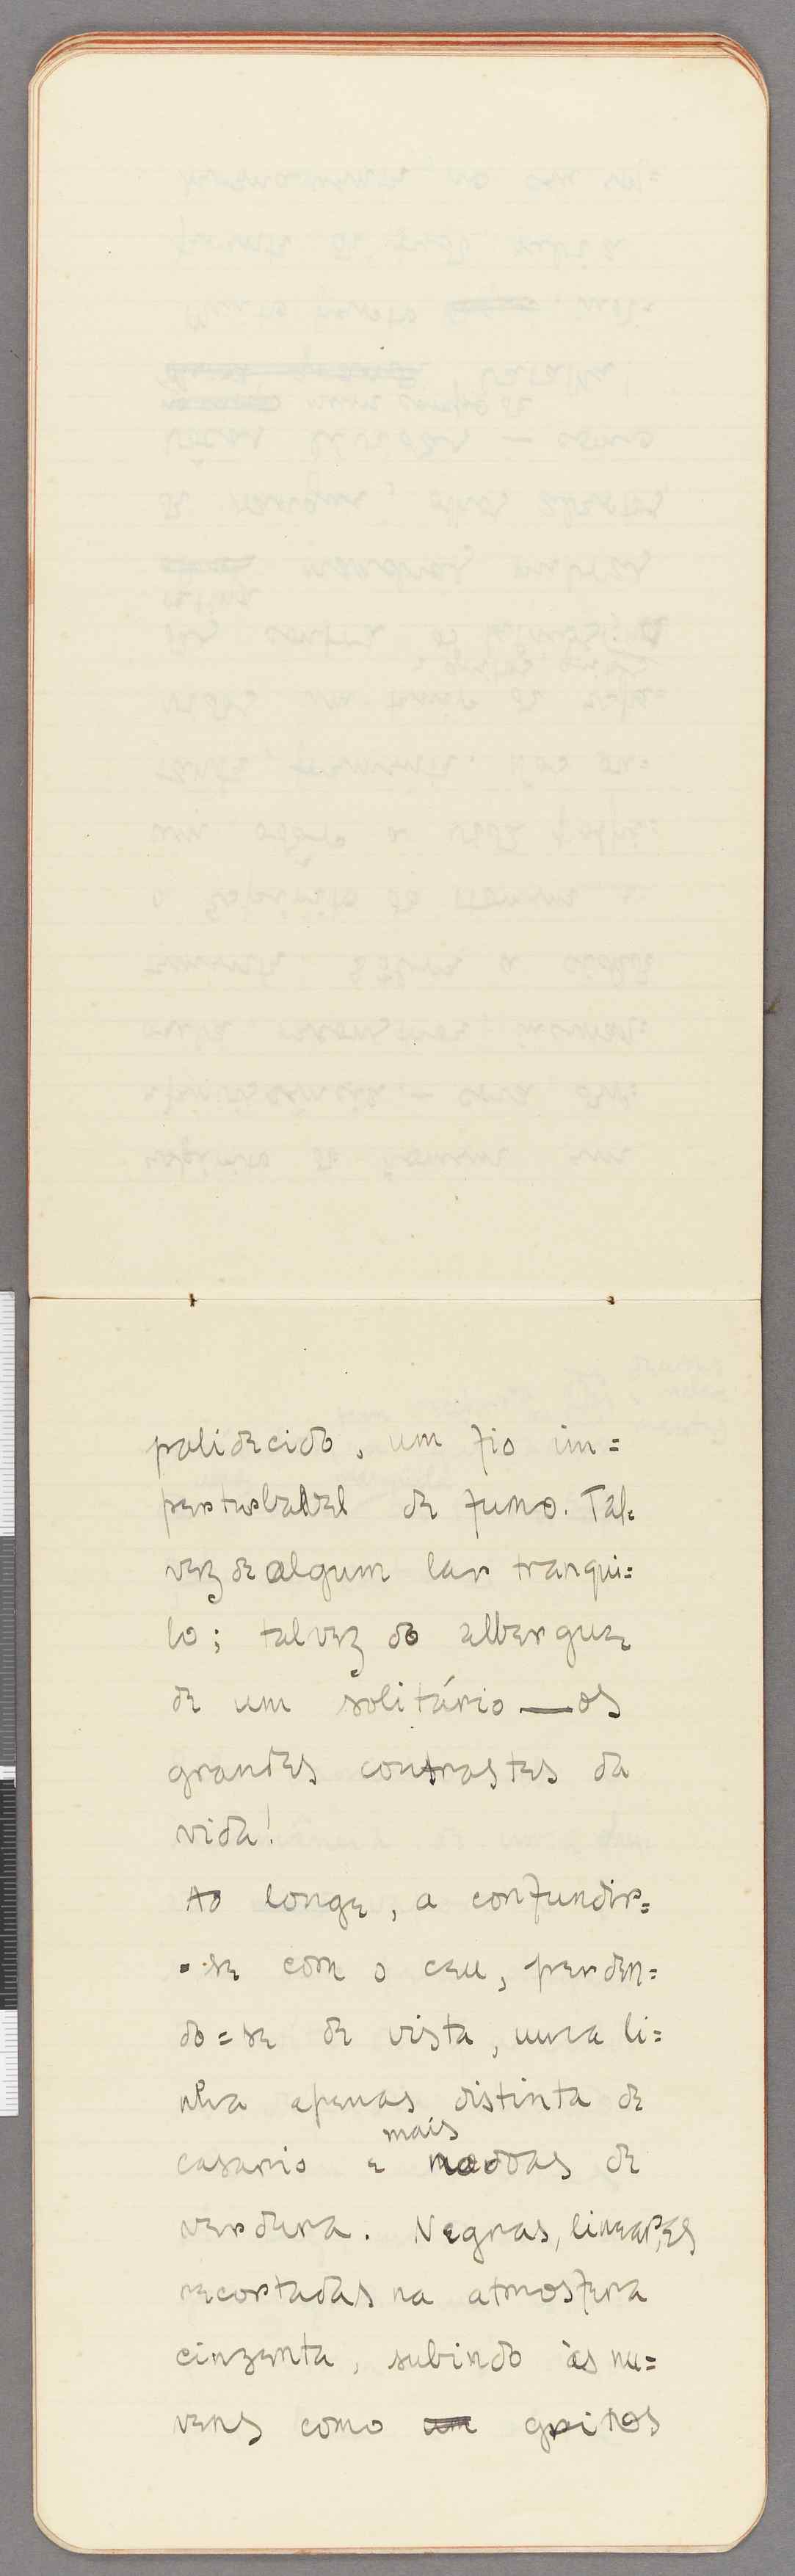 palidecido, um fio im=
perturbavel de fumo. Tal=
vez de algum lar tranqui=
lo; talvez do albergue
de um solitário — os
grandes contrastes da
vida!
Ao longe, a confundir=
-se com o ceu, perden=
do=se de vista, uma li=
nha apenas distinta de
mais
casario e nodoas de
verdura. Negras, lineares,
recortadas na atmosfera
cinzenta, subindo às nu=
vens como um gritos